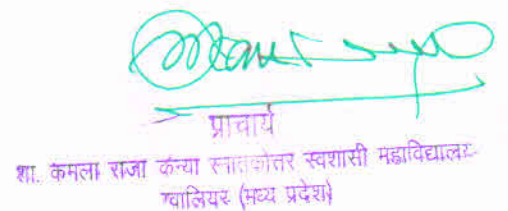 प्राचार्य
शा. कमला राजा कन्या स्नातकोत्तर स्वशासी महाविद्यालय
ग्वालियर (मध्य प्रदेश)